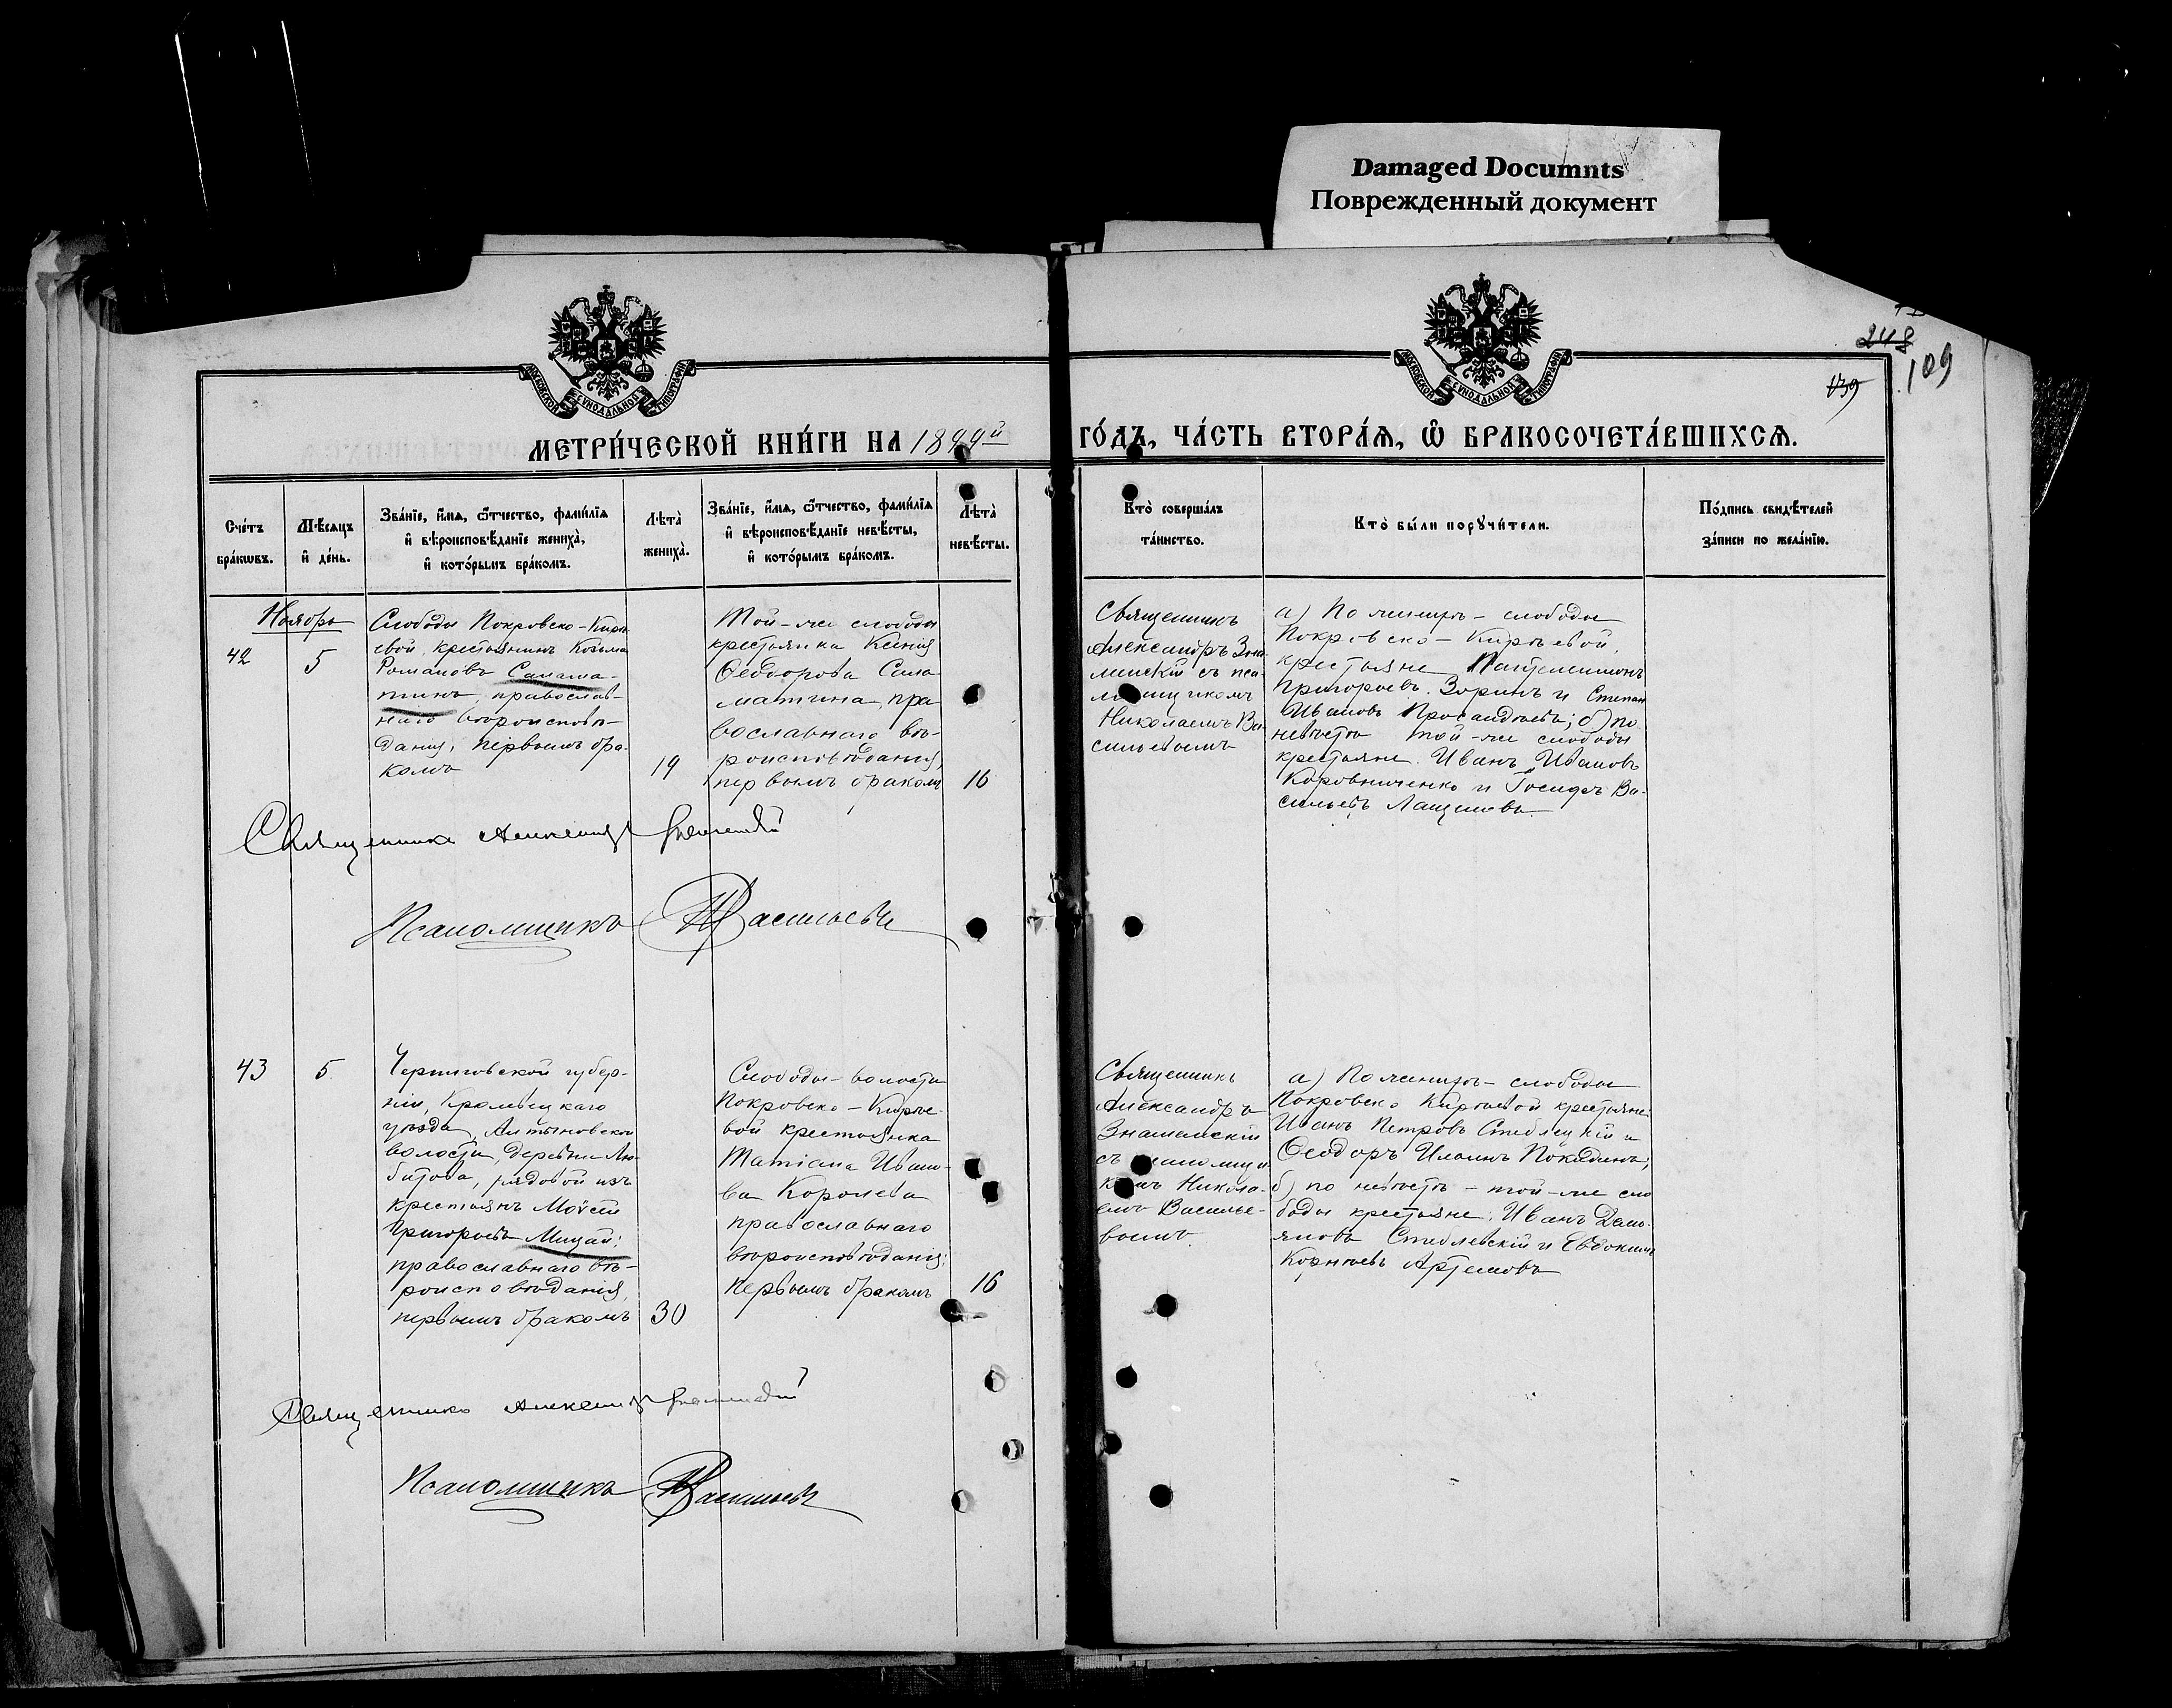 Damaged Documnts
Поврежденный документ
248
109
139
МОСКОВСКОЙ СѴНОДАЛЬНОЙ ТИПОГРАФІИ
МОСКОВСКОЙ СѴНОДАЛЬНОЙ ТИПОГРАФІИ
МЕТРИ́ЧЕСКОЙ КНИ́ГИ НА 1899й
ГО́ДЪ, ЧА́СТЬ ВТОРА́Ѧ, Ѡ҆ БРАКОСОЧЕТА́ВШИХСѦ.
Сче́тъ бра́кѡвъ.
Мѣ́сѧцъ и҆ де́нь.
Зва́нїе, и҆́мѧ, ѻ҆́тчество, фами́лїѧ
и҆ вѣроисповѣ́данїе жениха̀,
и҆ кото́рымъ бра́комъ.
Лѣта̀ жениха̀.
Зва́нїе, и҆́мѧ, ѻ҆́тчество, фами́лїѧ
и҆ вѣроисповѣ́данїе невѣ́сты,
и҆ кото́рымъ бра́комъ.
Лѣта̀ невѣ́сты.
Кто̀ соверша́лъ
та́инство.
Кто̀ бы́ли порꙋчи́тели.
По́дпись свидѣ́телей
за́писи по жела́нїю.
Ноябрь
42
5
Слободы Покровско-Кирѣ
евой, крестьянинъ Козьма
Романовъ Салама-
тинъ, православ-
наго вѣроисповѣ-
данія, первымъ бра-
комъ
19
Той-же слободы
крестьянка Ксенія
Ѳеодорова Сала
матина, пра
вославнаго вѣ-
роисповѣданія,
первымъ бракомъ
16
Священникъ
Александръ Зна-
менскій съ пса-
ломщикомъ
Николаемъ Ва-
сильевымъ
а) По женихѣ - слободы
Покровско-Кирѣевой,
крестьяне Пантелеимонъ
Григорьевъ Зоринъ и Степанъ
Ивановъ; б) по
невѣстѣ той-же слободы
крестьяне Иванъ Ивановъ
Коровниченко и Іосифъ Ва-
сильевъ
Священникъ Александръ Знаменскій
Псаломщикъ НВасильевъ
43
5
Черниговской губер-
ніи, Кролевецкаго
уѣзда, Алтыновской
волости, деревни Лю-
битова, рядовой изъ
крестьянъ Моѵсей
Григорьевъ Мицай;
православнаго вѣ-
роисповѣданія,
первымъ бракомъ
30
Слободы-волости
Покровско-Кирѣе-
вой крестьянка
Татіана Ивано-
ва Королева
православнаго
вѣроисповѣданія;
первымъ бракомъ
16
Священникъ
Александръ
Знаменскій
съ псаломщи-
комъ Никола-
емъ Василье-
вымъ.
а) По женихѣ - слободы
Покровско Кирѣевой крестьяне
Иванъ Петровъ Стеблецкій и
Ѳеодоръ Ильинъ Покидинъ;
б) по невѣстѣ - той-же сло
боды крестьяне: Иванъ Демь-
яновъ Стеблевскій и Евдокимъ
Корнѣевъ Артемовъ
Священникъ Александръ Знаменскій
Псаломщикъ НВасильевъ